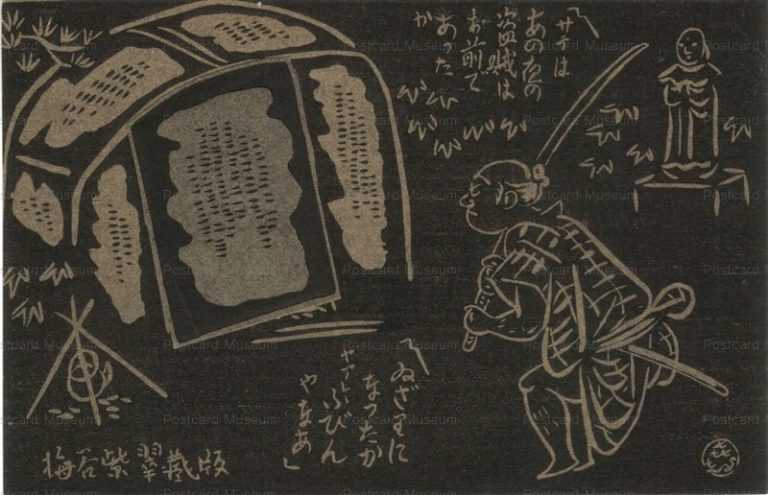 「サテは
あの夜の
盗賊は
お前で
あつた
か
「ゐざりに
なつたか
ヤアレふびん
やなあ」
梅谷紫翠蔵版
Postcard Museum